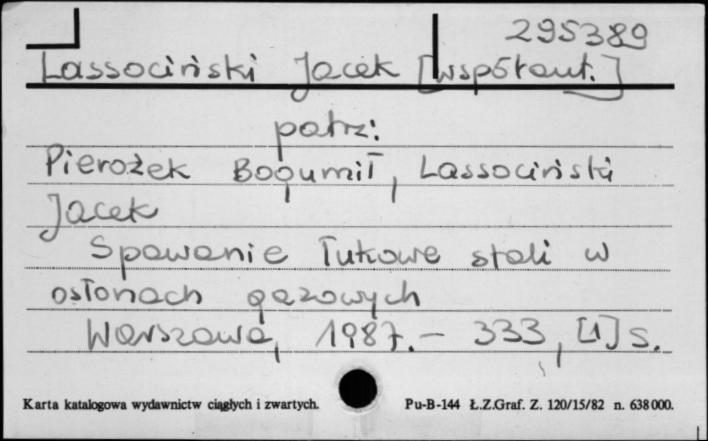 295389
Lassociński Jacek [współaut.]
patrz:
Pierożek Bogumił, Lassociński
Jacek
Spawanie łukowe stali w
osłonach gazowych
Warszawa, 1987.- 333, [1] s.
Karta katalogowa wydawnictw ciągłych i zwartych. Pu-B-144 Ł.Z.Graf. Z. 120/15/82 n. 638000.